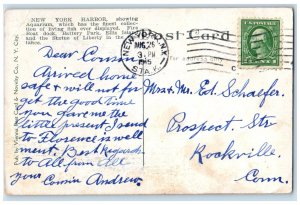 NEW YORK HARBOR, showing
Aquarium, which has the most collection
of living fish ever displayed. Fire
Boat dock, Battery Park, Ellis
and the Statue of Liberty in the
Post Card
NEW YORK, N.Y.
AUG 26
3 PM
STA. K.
For address only
Dear Cousin
Arrived home
safe & will not for
get the good time
you gave me the
little present I send
to Florence is well
ment. Best Regards
to All from All
your Cousin Andrew.
Mr. & Mrs. Ed. Schaefer.
Prospect Str
Rockville.
Conn.